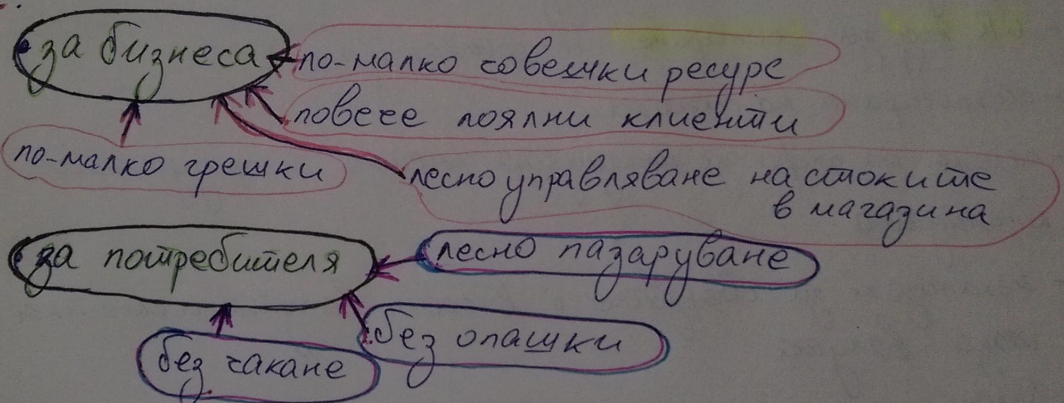 за бизнеса
по-малко човешки ресурс
повече лоялни клиенти
по-малко грешки
лесно управляване на стоките
в магазина
за потребителя
лесно пазаруване
без опашки
без чакане